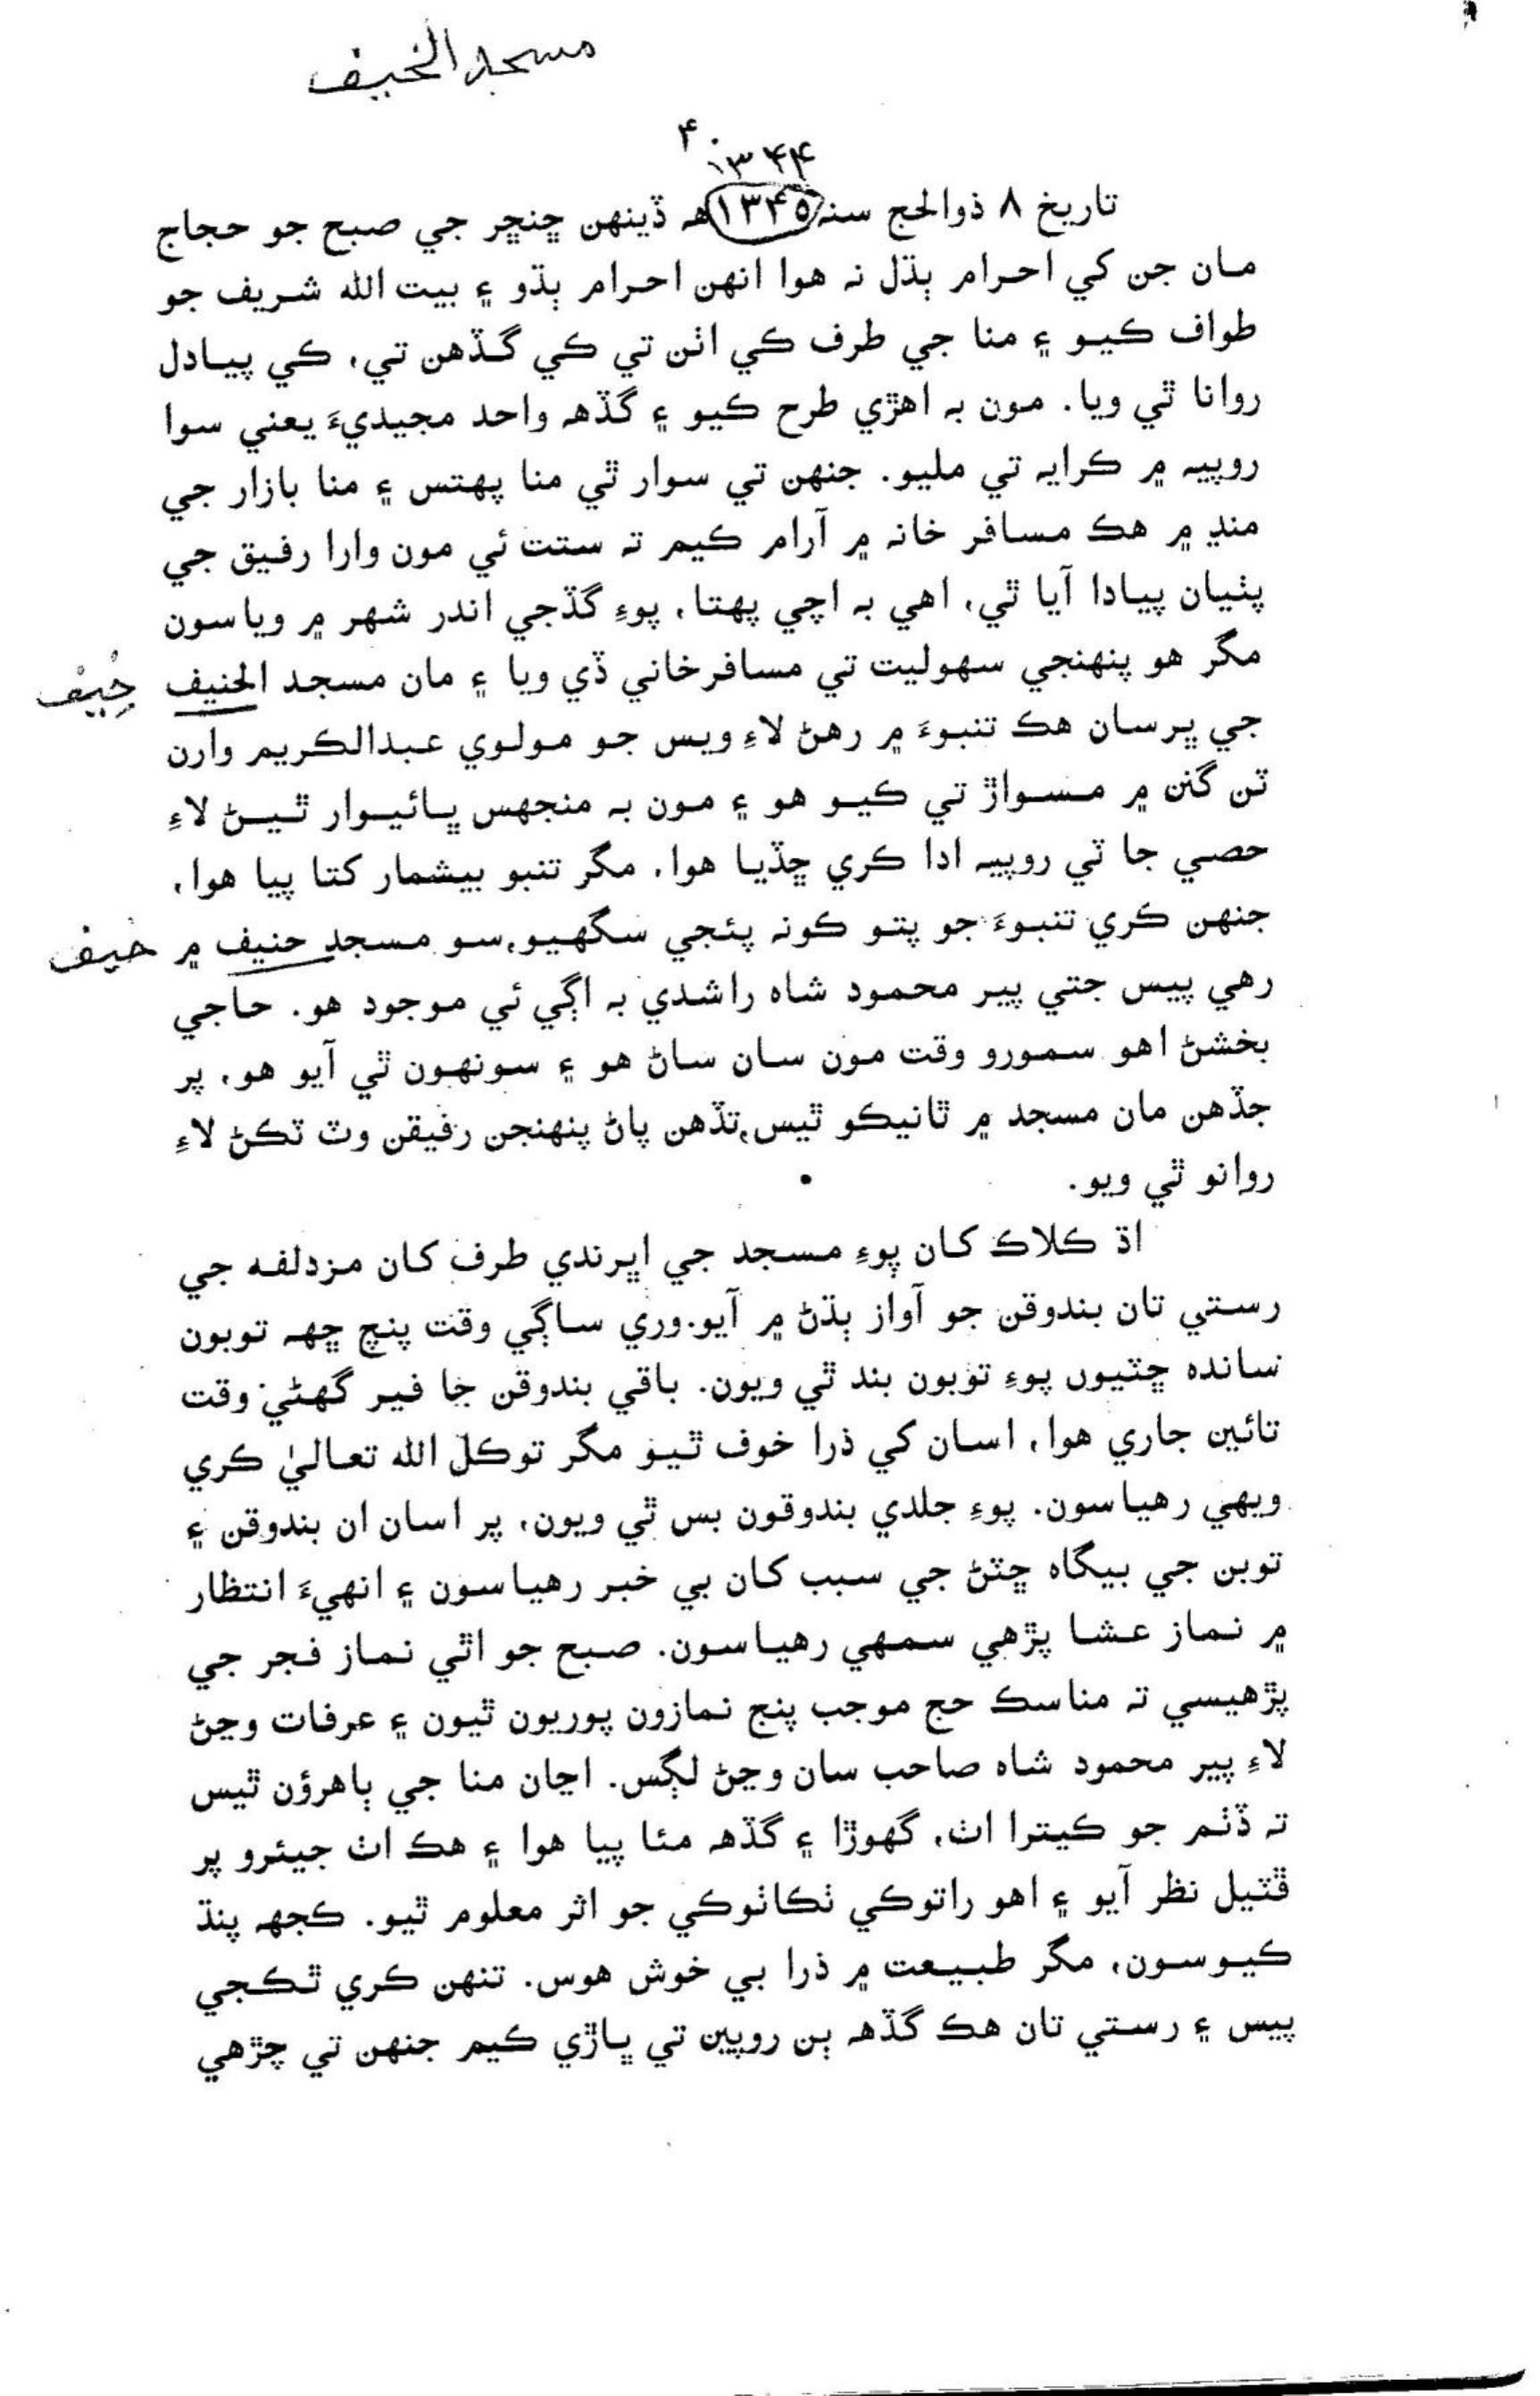 مسجد الخيف
۴
۱۳۴۴
تاريخ ۸ ذوالحج سنہ ۱۳۴۵ھہ ڏينهن ڇنڇر جي صبح جو حجاج
مان جن کي احرام ٻڌل نہ هوا انهن احرام ٻڌو ۽ بيت الله شريف جو
طواف ڪيو ۽ منا جي طرف ڪي اٺن تي ڪي گڏهن تي، ڪي پيادل
روانا ٿي ويا. مون بہ اهڙي طرح ڪيو ۽ گڏهہ واحد مجيديءَ يعني سوا
روپيہ ۾ ڪرايہ تي مليو. جنهن تي سوار ٿي منا پهتس ۽ منا بازار جي
منڍ ۾ هڪ مسافر خانہ ۾ آرام ڪيم تہ ستت ئي مون وارا رفيق جي
پٺيان پيادا آيا ٿي، اهي بہ اچي پهتا، پوءِ گڏجي اندر شهر ۾ وياسون
مگر هو پنهنجي سهوليت تي مسافرخاني ڏي ويا ۽ مان مسجد الحنيف خِيْف
جي ڀرسان هڪ تنبوءَ ۾ رهڻ لاءِ ويس جو مولوي عبدالڪريم وارن
ٽن گنن ۾ مسواڙ تي ڪيو هو ۽ مون بہ منجهس ڀائيوار ٿيڻ لاءِ
حصي جا ٽي روپيہ ادا ڪري ڇڏيا هوا، مگر تنبو بيشمار کتا پيا هوا،
جنهن ڪري تنبوءَ جو پتو ڪونہ پئجي سگهيو، سو مسجد حنيف ۾ خيف
رهي پيس جتي پير محمود شاه راشدي بہ اڳي ئي موجود هو. حاجي
بخشڻ اهو سمورو وقت مون سان ساڻ هو ۽ سونهون ٿي آيو هو، پر
جڏهن مان مسجد ۾ ٿانيڪو ٿيس، تڏهن پاڻ پنهنجن رفيقن وٽ ٽڪڻ لاءِ
روانو ٿي ويو.
اڌ ڪلاڪ کان پوءِ مسجد جي اڀرندي طرف کان مزدلفہ جي
رستي تان بندوقن جو آواز ٻڌڻ ۾ آيو. وري ساڳي وقت پنج ڇهہ توبون
سانده ڇٽيون پوءِ توبون بند ٿي ويون. باقي بندوقن جا فير گهڻي وقت
تائين جاري هوا، اسان کي ذرا خوف ٿيو مگر توڪل الله تعاليٰ ڪري
ويهي رهياسون. پوءِ جلدي بندوقون بس ٿي ويون، پر اسان ان بندوقن ۽
توبن جي بيگاه ڇٽڻ جي سبب کان بي خبر رهياسون ۽ انهيءَ انتظار
۾ نماز عشا پڙهي سمهي رهياسون. صبح جو اٿي نماز فجر جي
پڙهيسي تہ مناسڪ حج موجب پنج نمازون پوريون ٿيون ۽ عرفات وڃڻ
لاءِ پير محمود شاه صاحب سان وڃڻ لڳس. اڃان منا جي ٻاهرؤن ٿيس
تہ ڏٺم جو ڪيترا اٺ، گهوڙا ۽ گڏهہ مئا پيا هوا ۽ هڪ اٺ جيئرو پر
ڦٽيل نظر آيو ۽ اهو راتوڪي ٺڪاٺوڪي جو اثر معلوم ٿيو. ڪجهہ پنڌ
ڪيوسون، مگر طبيعت ۾ ذرا بي خوش هوس. تنهن ڪري ٿڪجي
پيس ۽ رستي تان هڪ گڏهہ ٻن روپين تي ڀاڙي ڪيم جنهن تي چڙهي